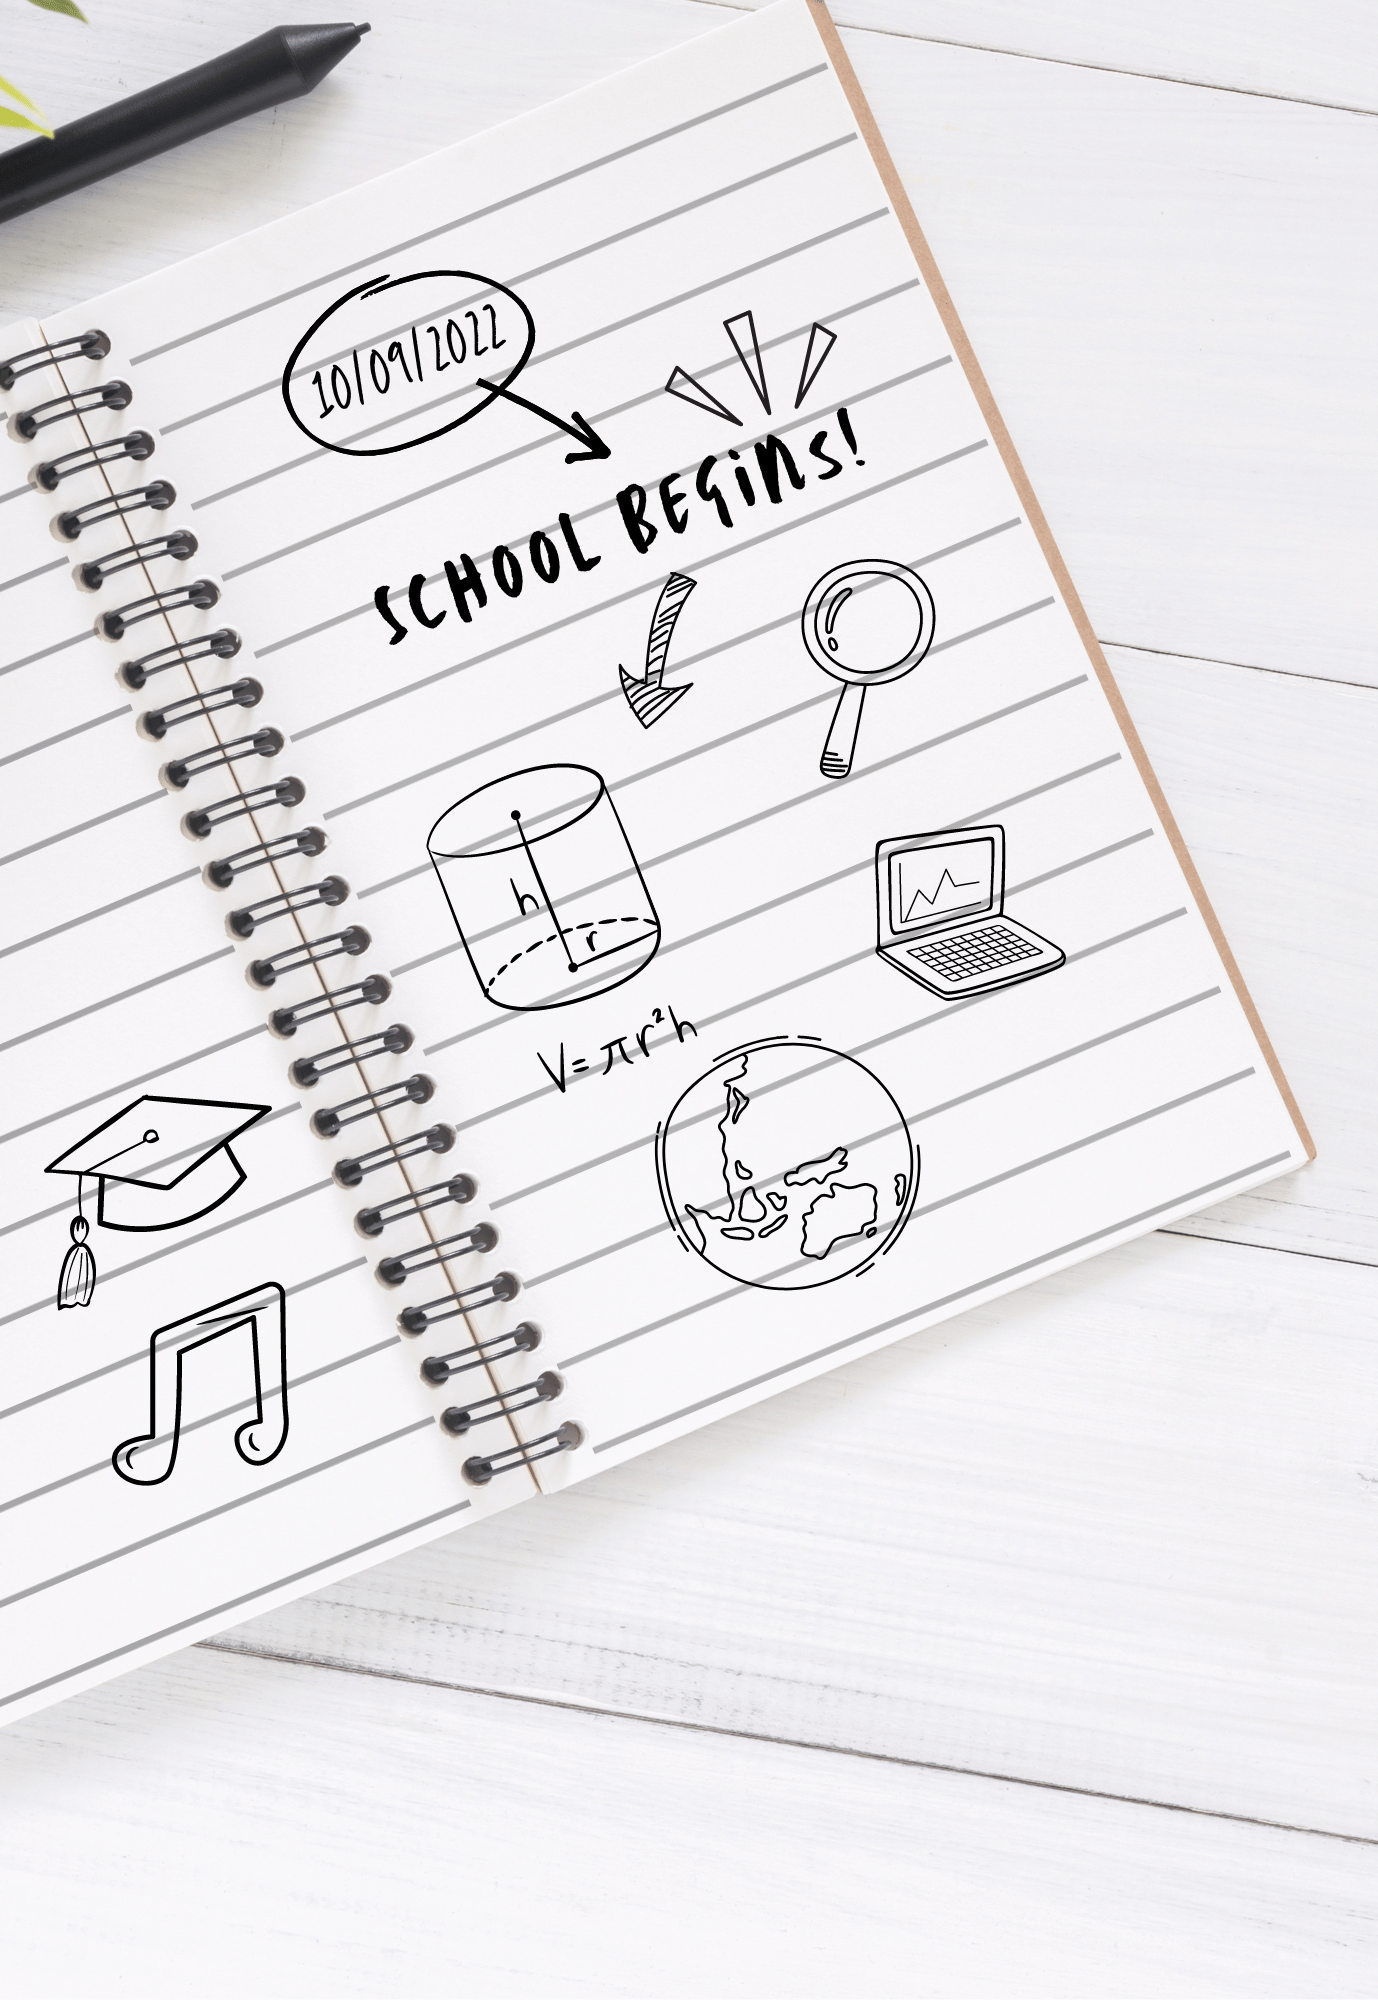 10/09/2022
SCHOOL BEGINS!
h
r
V = πr²h